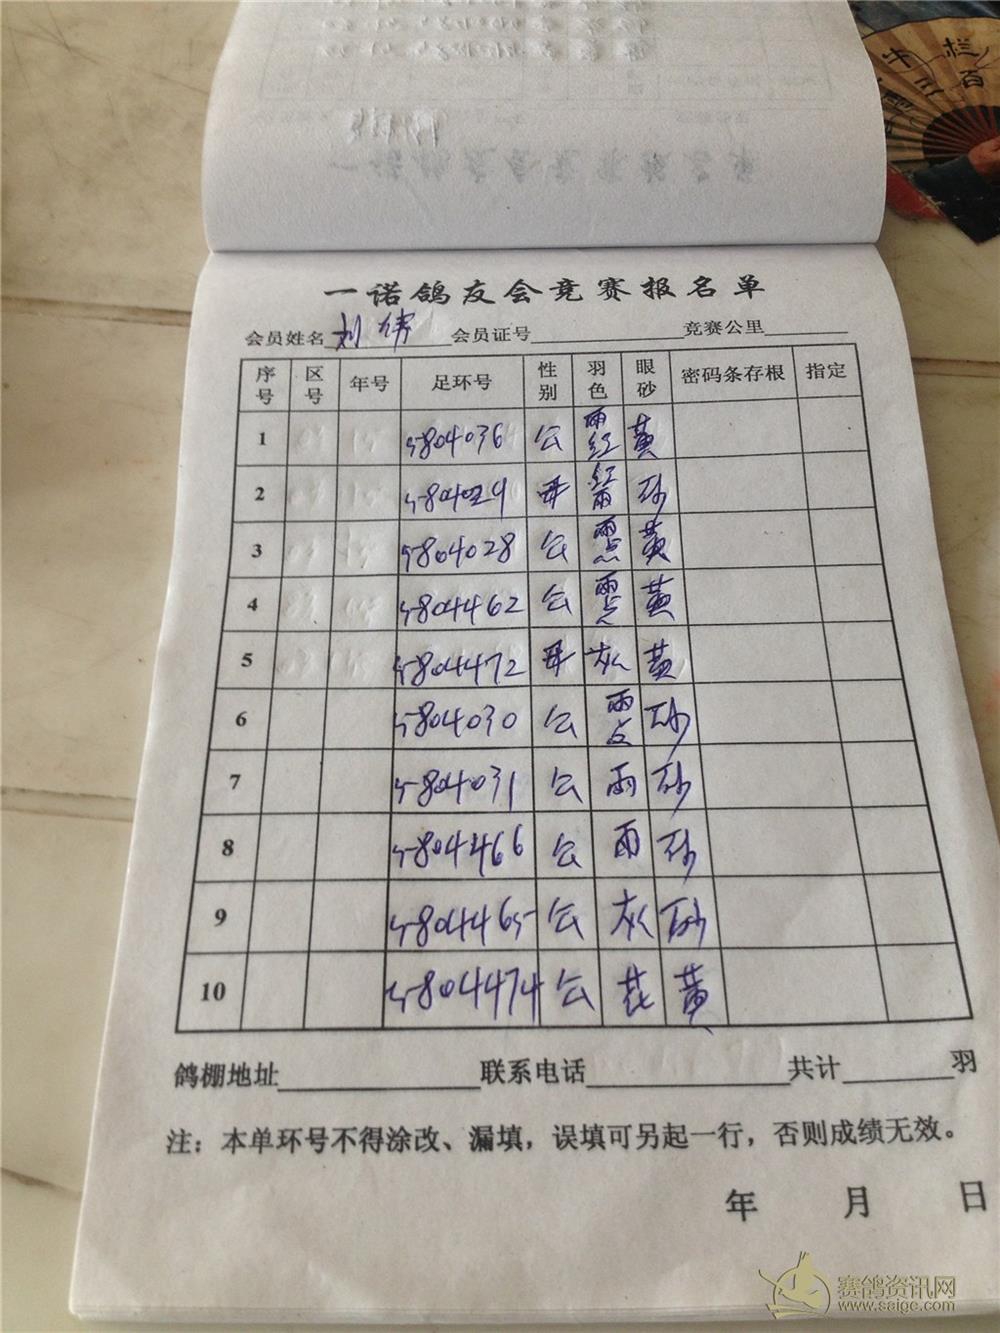 牛栏
三百
一诺鸽友会竞赛报名单
会员姓名 刘伟 会员证号 竞赛公里
序号 区号 年号 足环号 性别 羽色 眼砂 密码条存根 指定
1 5804036 公 雨红 黄
2 红雨 砂
3 5804028 公 雨点 黄
4 5804462 公 雨点 黄
5 5804472 母 灰 黄
6 5804030 公 雨点 砂
7 5804031 公 雨 砂
8 5804466 公 雨 砂
9 5804465 公 灰 砂
10 5804474 公 花 黄
鸽棚地址 联系电话 共计 羽
注：本单环号不得涂改、漏填，误填可另起一行，否则成绩无效。
年 月 日
赛鸽资讯网
www.saige.com